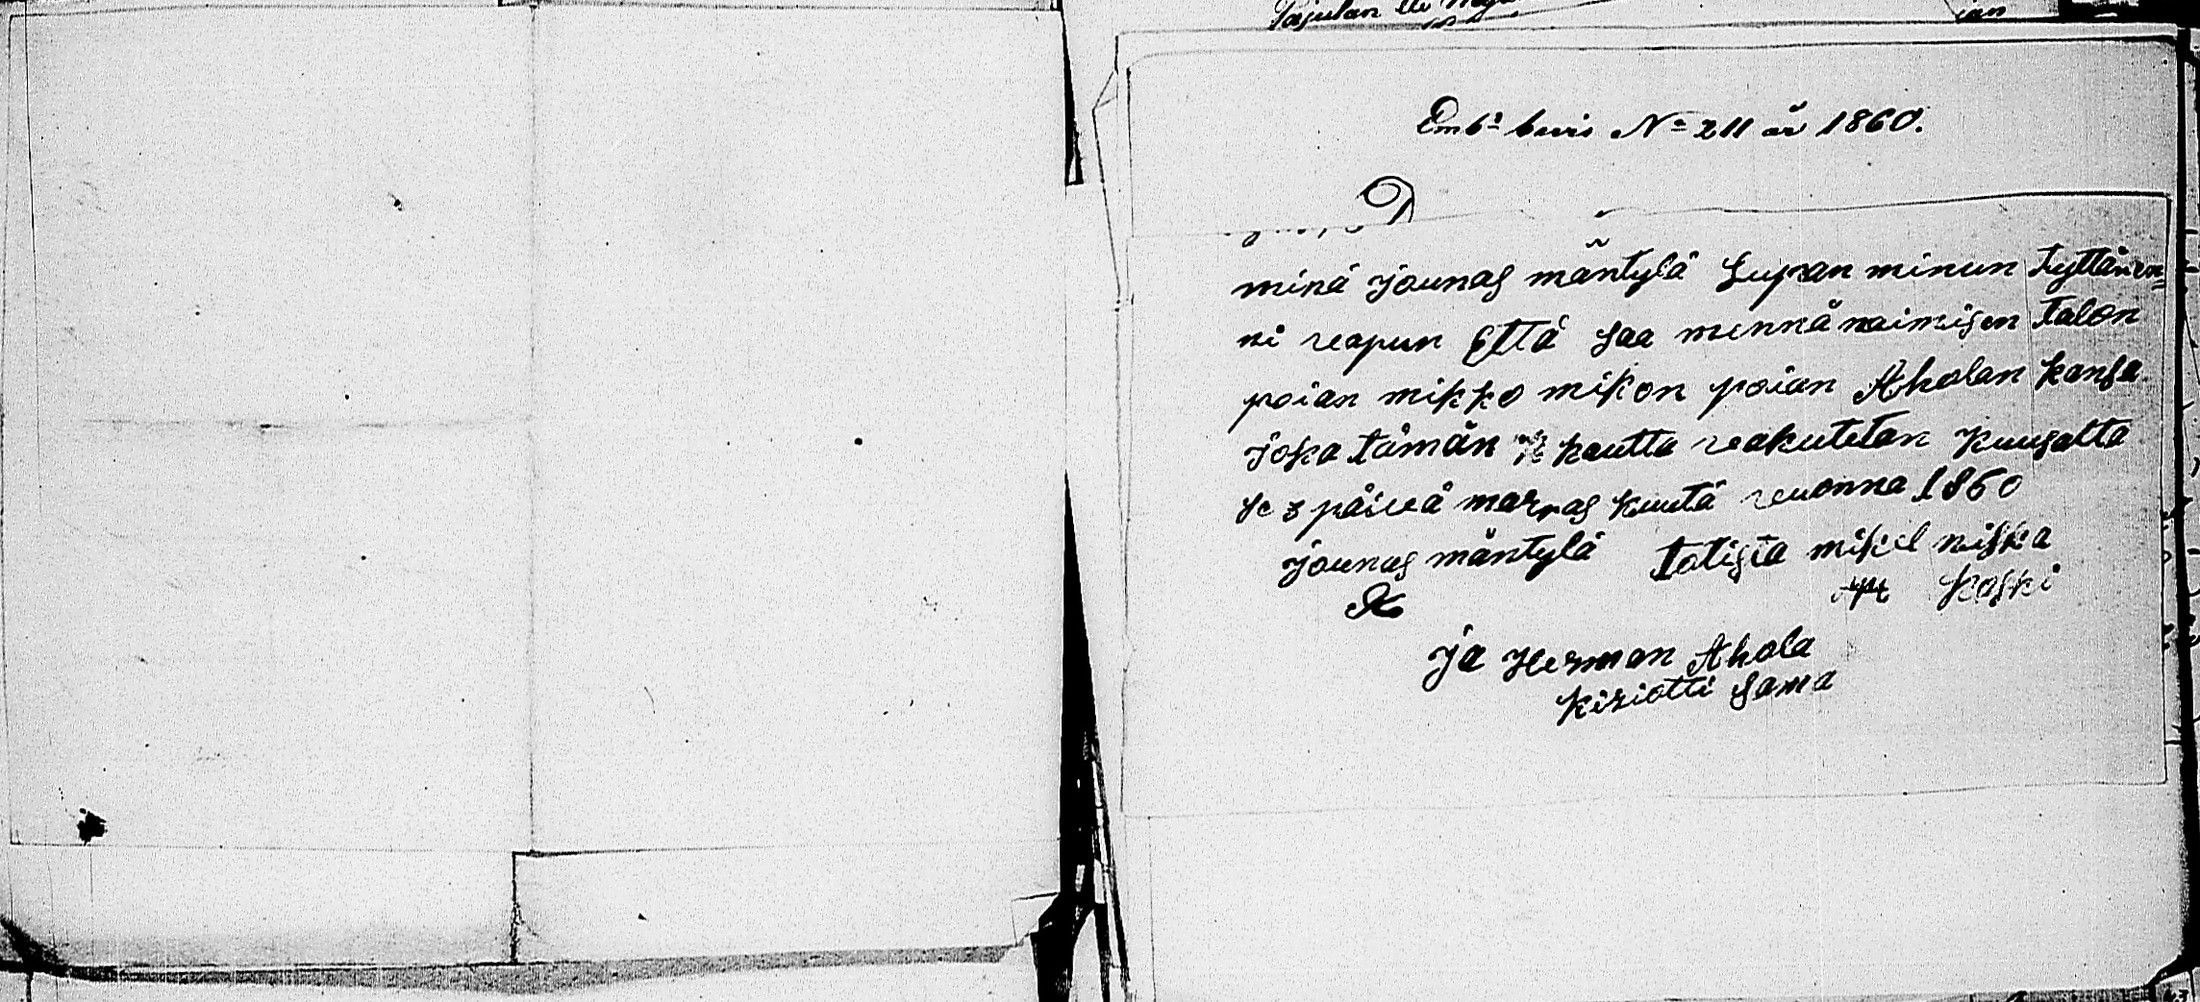 Pajulan
Embs bevis No 211 år 1860.
minä jounas mäntylä Lupan minun tyttären=
ni reapun Että saa mennä naimisen talon
poian mikko mikon poian Aholan kansa
joka tämän kautta reakutetan kuusalta
se 3 päivä marras kuuta vuonna 1860
jounas mäntylä totista mikel niska
koski
ja Herman Ahola
kiriotti sama